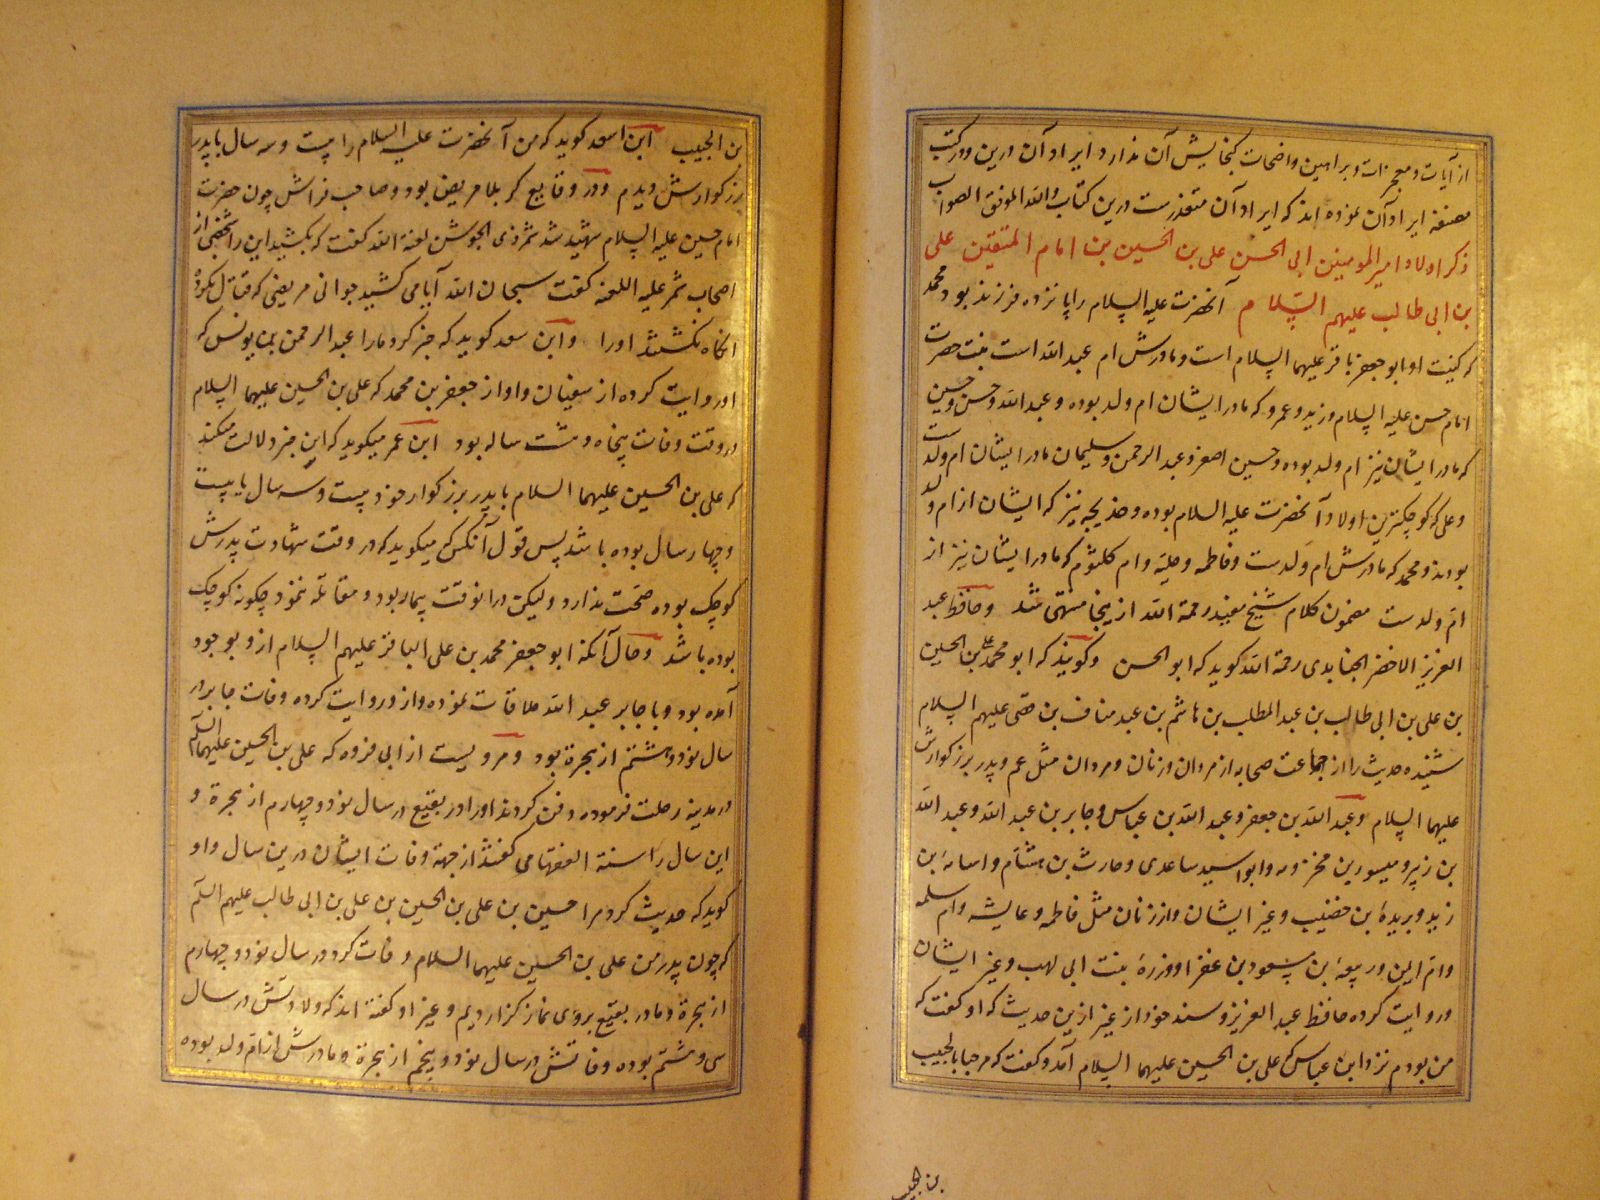 از آیات و معجزات و براهین واضحات کنجایش آن ندارد ایراد آن درین و در کتب
مصنفه ایراد آن نموده اند که ایراد آن متعذرست درین کتاب والله الموفق الصواب
ذکر اولاد امیر المومنین ابی الحسن علی بن الحسین بن امام المتقین علی
بن ابی طالب علیهم السلام آنحضرت علیه السلام را پانزده فرزند بود محمد
که کنیت او ابو جعفر باقر علیهما السلام است و مادرش ام عبد الله است بنت حضرت
امام حسن علیه السلام و زید و عمرو که مادر ایشان ام ولد بوده و عبد الله و حسن و حسین
که مادر ایشان نیز ام ولد بوده و حسین اصغر و عبد الرحمن و سلیمان مادر ایشان ام ولدست
و علی که کوچکترین اولاد آنحضرت علیه السلام بوده و خدیجه نیز که ایشان از ام ولد
بودند و محمد که مادرش ام ولدست و فاطمه و علیه و ام کلثوم که مادر ایشان نیز از
ام ولدست مضمون کلام شیخ مفید رحمة الله از ینجا منتهی شد و حافظ عبد
العزیز الاخضر الجنابدی رحمة الله کوید که ابو الحسن و کویند که ابو محمد علی بن الحسین
بن علی بن ابی طالب بن عبد المطلب بن هاشم بن عبد مناف بن قصی علیهم السلام
شنیده حدیث را از جماعت صحابه از مردان و زنان و مردان مثل عم و پدر بزرکوارش
علیهما السلام و عبد الله بن جعفر و عبد الله بن عباس و جابر بن عبد الله و عبد الله
بن زبیر و میسور بن مخزومه و ابو اسید ساعدی و حارث بن هشام و اسامة بن
زید و بریدة بن خضیب و غیر ایشان و از زنان مثل فاطمه و عایشه و ام سلمه
و ام ایمن و ربیعة بن مسعود بن عفرا و وزرة بنت ابی لهب و غیر ایشان
و روایت کرده حافظ عبد العزیز و سند خود از غیر ازین حدیث که او کفت که
من بودم نزد ابن عباس که علی بن الحسین علیهما السلام آمد و کفت که مرحبا بالحبیب
بن الحبیب
بن الحبیب ابن اسعد کوید که من آنحضرت علیه السلام را بیست و سه سال با پدر
بزرکوارش دیدم و در وقایع کربلا مریض بود و صاحب فراش چون حضرت
امام حسین علیه السلام شهید شد شمر ذی الجوشن لعنة الله کفت که بکشید این را شخصی از
اصحاب شمر علیه اللعنه کفت سبحان الله آیا می کشید جوانی مریضی که قتال نکرده
آنکاه نکشتند او را و ابن سعد کوید که خبر کرد مارا عبد الرحمن بن یونس که
او روایت کرده از سفیان و او از جعفر بن محمد که علی بن الحسین علیهما السلام
در وقت وفات پنجاه و هشت ساله بود ابن عمر میکوید که این خبر دلالت میکند
که علی بن الحسین علیهما السلام با پدر بزرکوار خود بیست و سه سال یا بیست
و چهار سال بوده باشد پس قول آنکس که میکوید که در وقت شهادت پدرش
کوچک بوده صحت ندارد و لیکن در آنوقت بیمار بود و مقاتله ننمود چکونه کوچک
بوده باشد و حال آنکه ابو جعفر محمد بن علی الباقر علیهم السلام ازو بوجود
آمده بود و با جابر عبد الله ملاقات نموده و ازو روایت کرده وفات جابر در
سال نود و هشتم از هجرة بود و مرویست از ابی فروه که علی بن الحسین علیهما السلام
در مدینه رحلت فرموده دفن کردند او را در بقیع در سال نود و چهارم از هجرة و
این سال را سنة الفقها می کفتند از جهة وفات ایشان درین سال و او
کوید که حدیث کرد مرا حسین بن علی بن الحسین بن علی بن ابی طالب علیهم السلم
که چون پدر من علی بن الحسین علیهما السلام وفات کرد در سال نود و چهارم
از هجرة و ما در بقیع بروی نماز کزاردیم و غیر او کفته اند که ولادتش در سال
سی و هشتم بوده وفاتش در سال نود و پنجم از هجرة و مادرش از ام ولد بوده